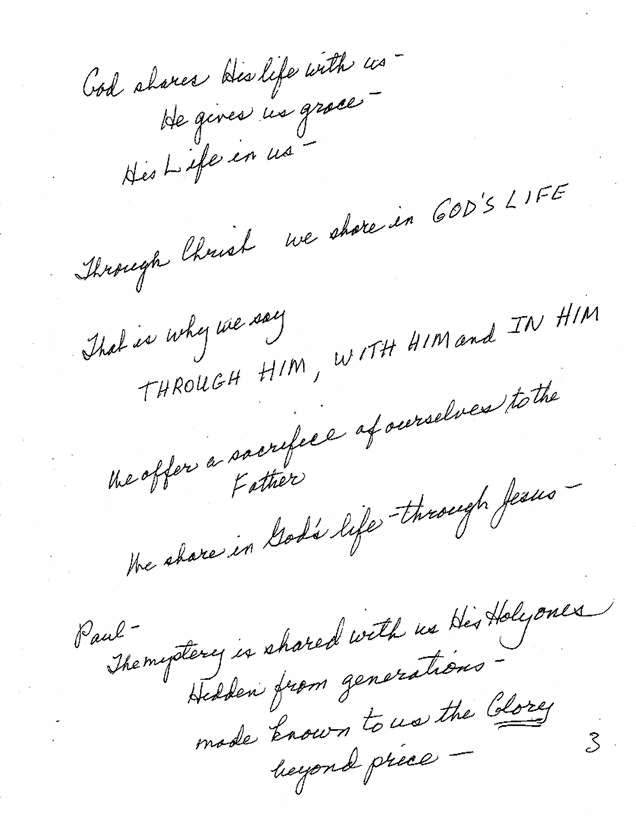 God shares His life with us -
He gives us grace -
His Life in us -
Through Christ we share in GOD'S LIFE
That is why we say
THROUGH HIM, WITH HIM and IN HIM
We offer a sacrifice of ourselves to the
Father
We share in God's life - through Jesus -
Paul -
The mystery is shared with us His Holy ones
Hidden from generations -
made known to us the Glory
beyond price -
3